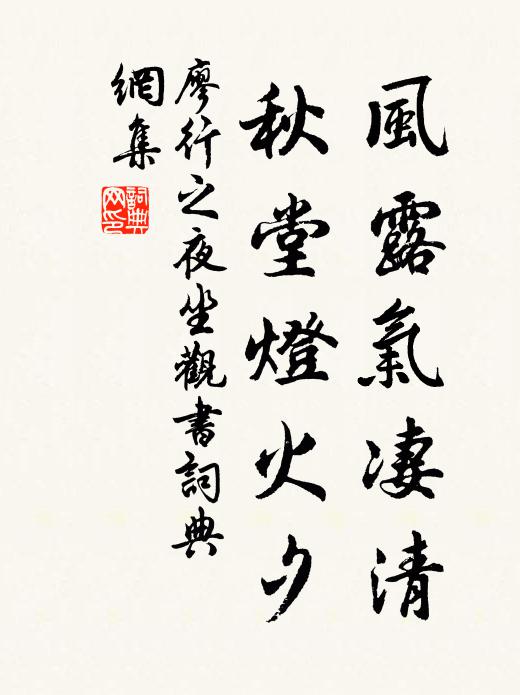 風露氣凄清
秋堂燈火夕
廖行之夜坐觀書詞典
網集
詞典
网印